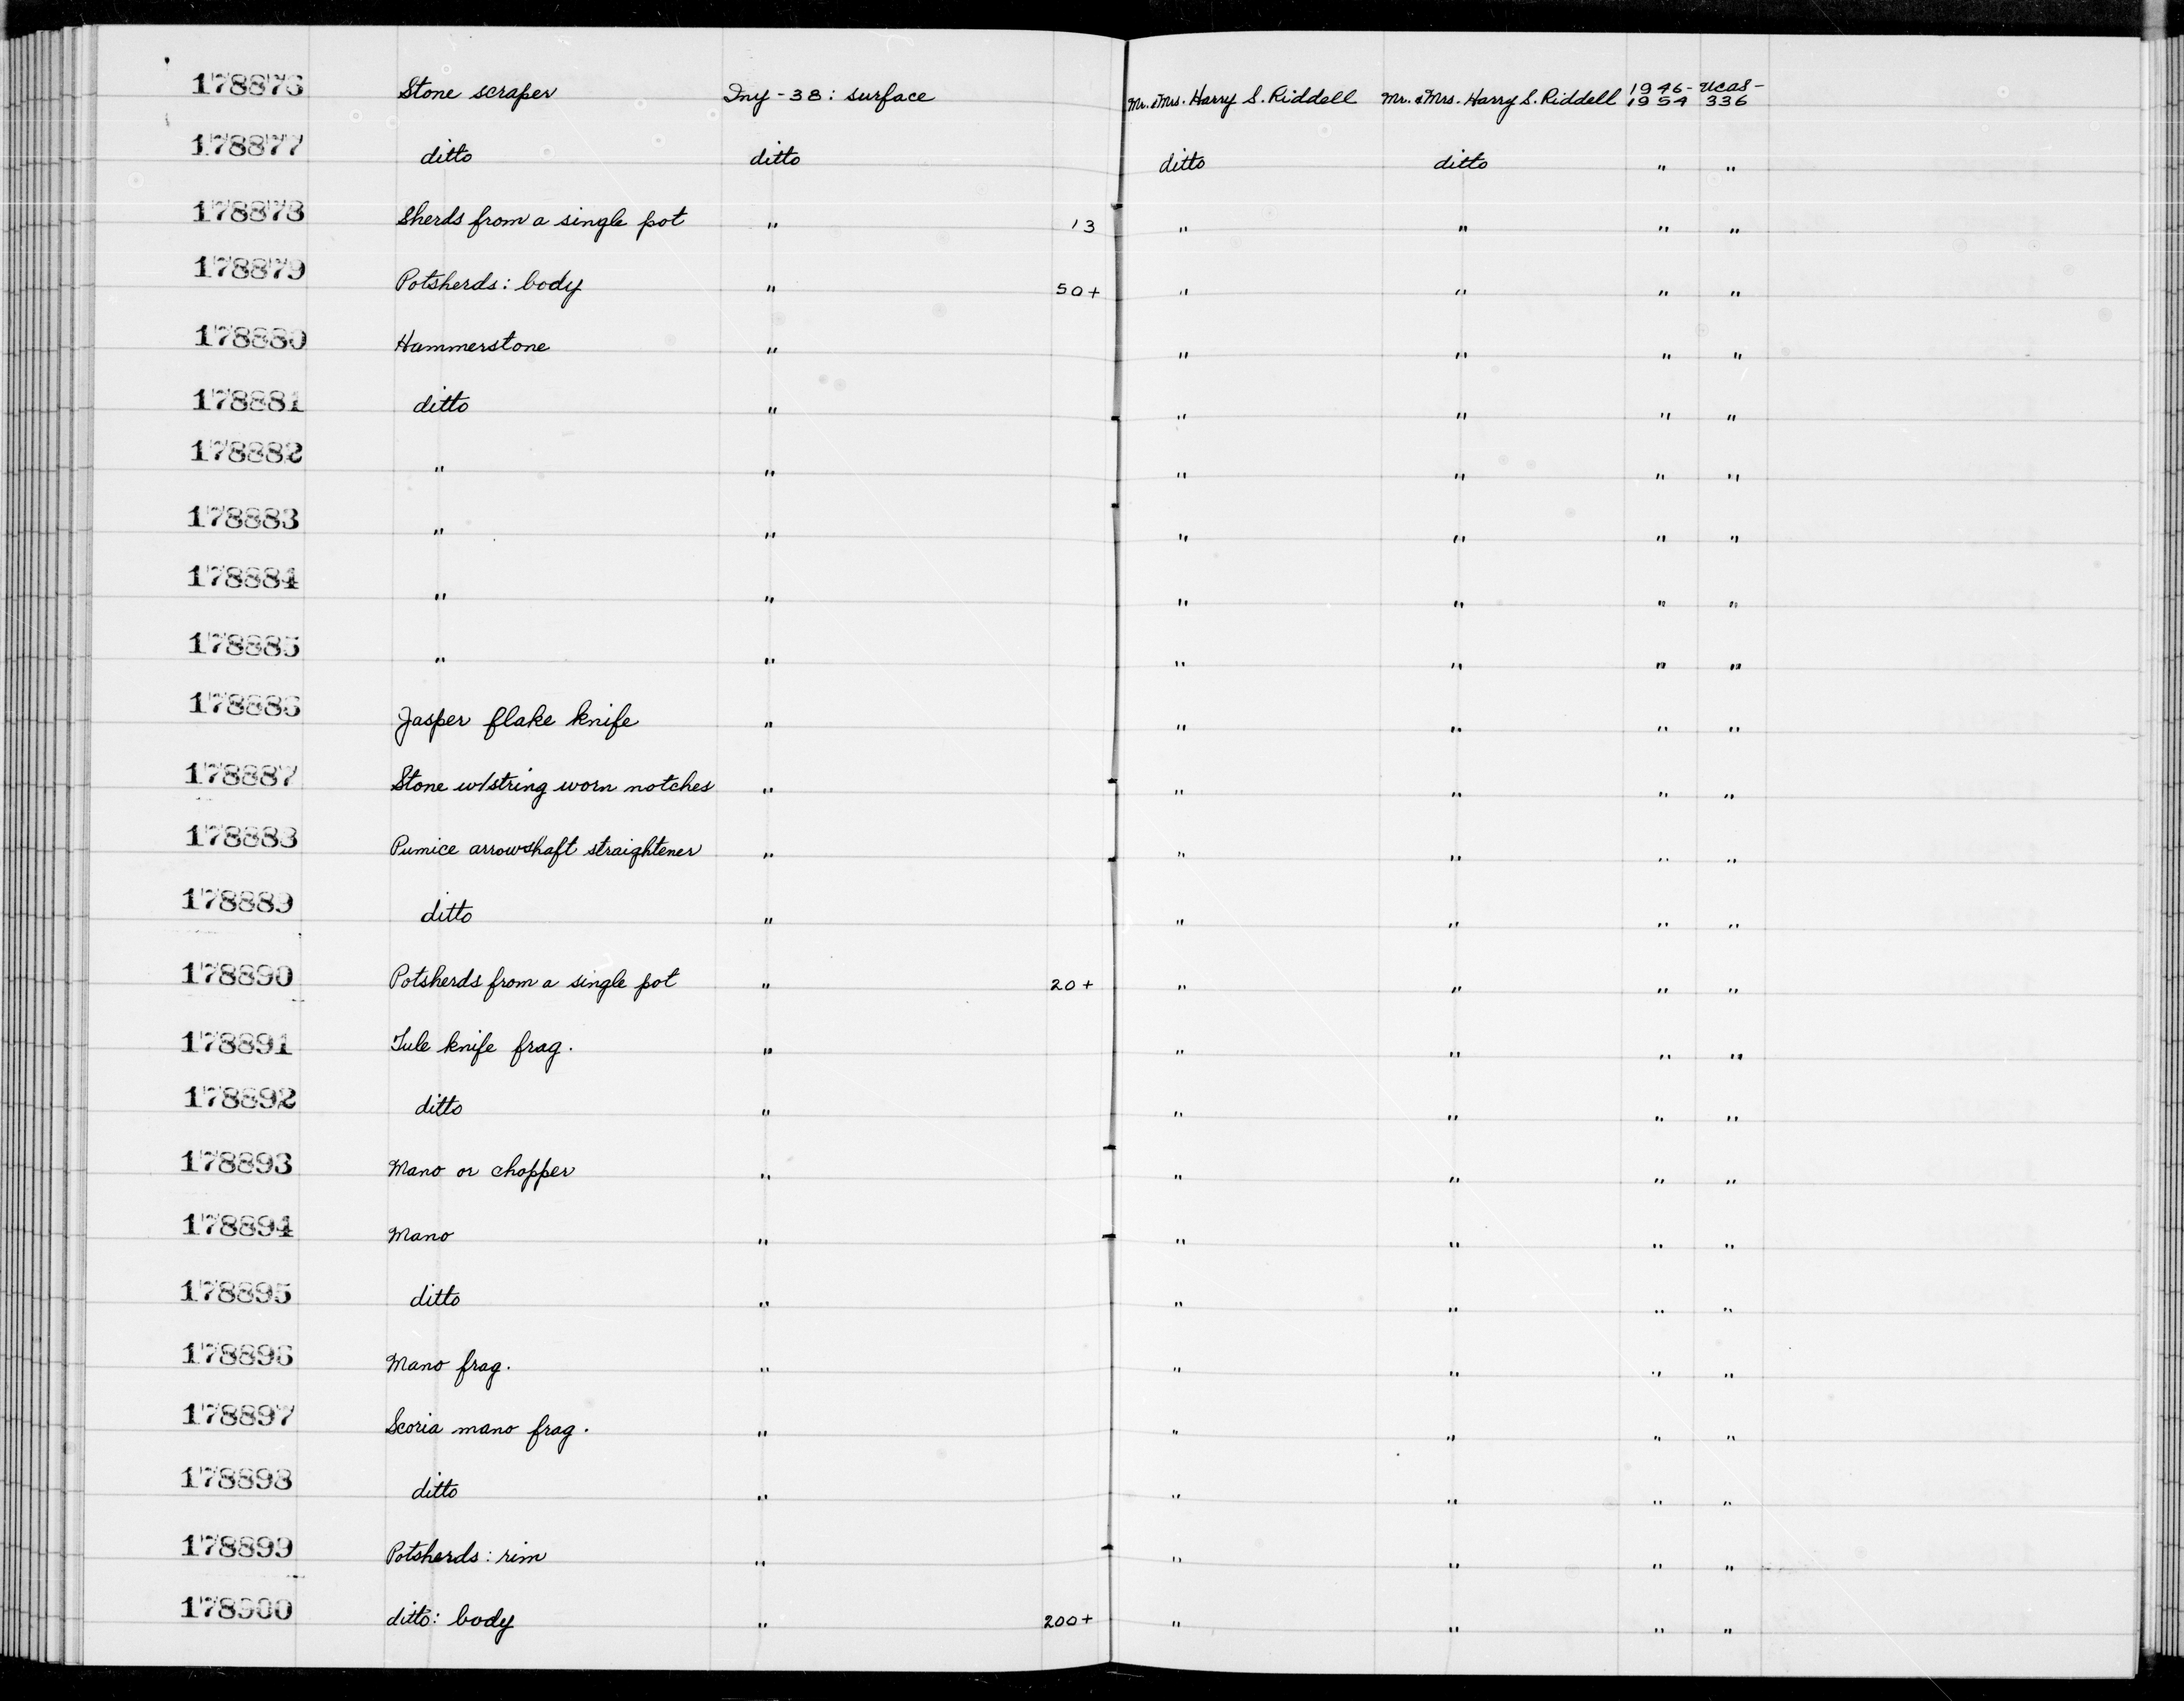 178876 Stone scraper Iny-38: surface Mr. & Mrs. Harry S. Riddell Mr. & Mrs. Harry S. Riddell 1946-1954 UCAS-336
178877 ditto ditto ditto ditto " "
178878 Sherds from a single pot " 13 " " " "
178879 Potsherds: body " 50+ " " " "
178880 Hammerstone " " " " "
178881 ditto " " " " "
178882 " " " " " "
178883 " " " " " "
178884 " " " " " "
178885 " " " " " "
178886 Jasper flake knife " " " " "
178887 Stone w/string worn notches " " " " "
178888 Pumice arrowshaft straightener " " " " "
178889 ditto " " " " "
178890 Potsherds from a single pot " 20+ " " " "
178891 Tule knife frag. " " " " "
178892 ditto " " " " "
178893 Mano or chopper " " " " "
178894 Mano " " " " "
178895 ditto " " " " "
178896 Mano frag. " " " " "
178897 Scoria mano frag. " " " " "
178898 ditto " " " " "
178899 Potsherds: rim " " " " "
178900 ditto: body " 200+ " " " "